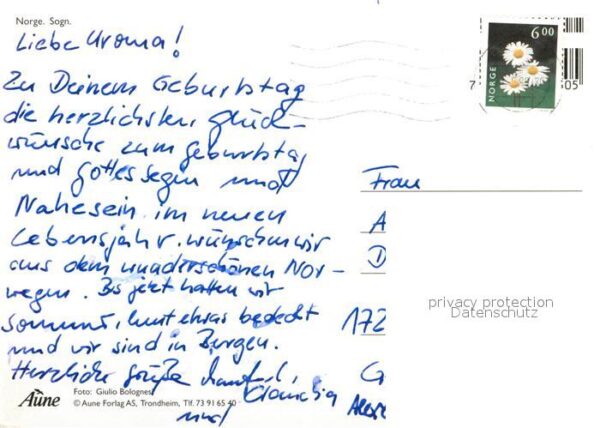 Norge. Sogn.
Liebe Uroma!
Zu Deinem Geburtstag
die herzlichsten Glück-
wünsche zum Geburtstag
und Gottes Segen und
Nahesein im neuen
Lebensjahr wünschen wir
aus dem wunderschönen Nor-
wegen. Bis jetzt hatten wir
Sommer, heut etwas bedeckt
und wir sind in Bergen.
Herzliche Grüße
Claudia
und
NORGE
6 00
7
05
Frau
A
D
172
G
privacy protection
Datenschutz
Aune
Foto: Giulio Bolognesi
© Aune Forlag AS, Trondheim, Tlf. 73 91 65 40